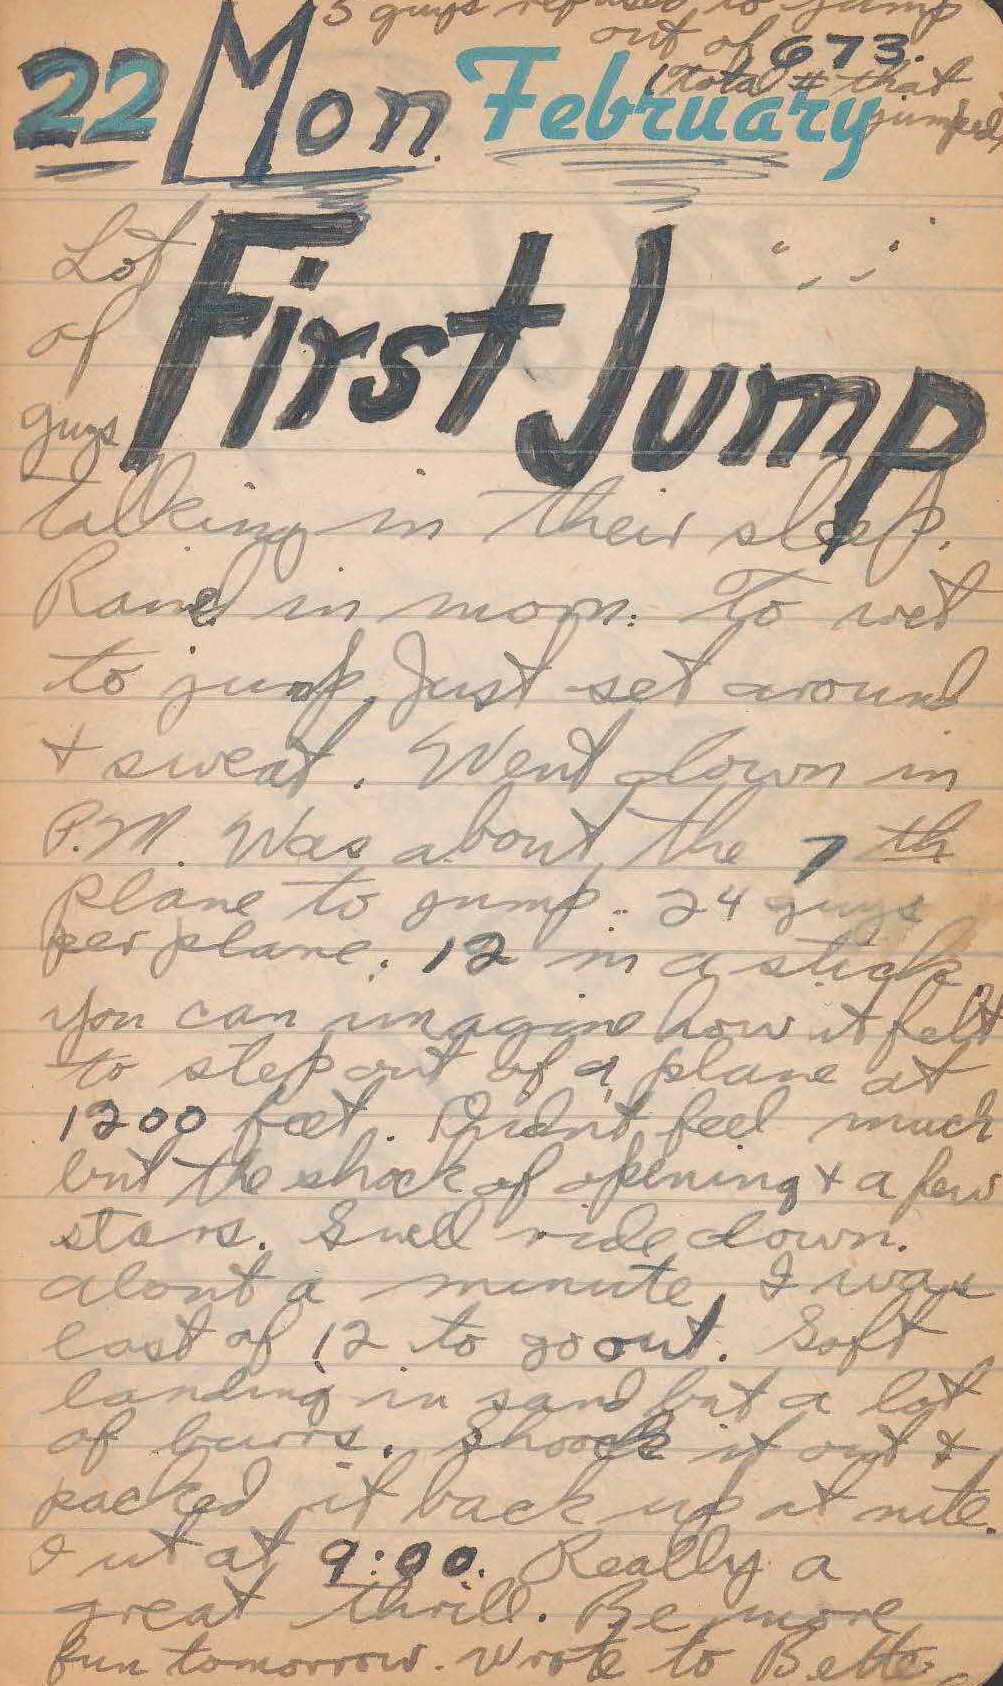 3 guys refused to jump
out of 673.
(total # that
jumped)
22 Mon. February
First Jump
Lot
of
guys
talking in their sleep.
Rained in morn. To wet
to jump. Just set around
+ sweat. Went down in
P.M. Was about the 7th
plane to jump. 24 guys
per plane. 12 in a stick
you can imagine how it felt
to step out of a plane at
1200 feet. Didn't feel much
but the shock of opening + a few
stars. Swell ride down.
about a minute, I was
last of 12 to go out. Soft
landing in sand but a lot
of burrs. Shook it out +
packed it back up at nite.
at 9:00. Really a
great thrill. Be more
fun tomorrow. Wrote to Bette.